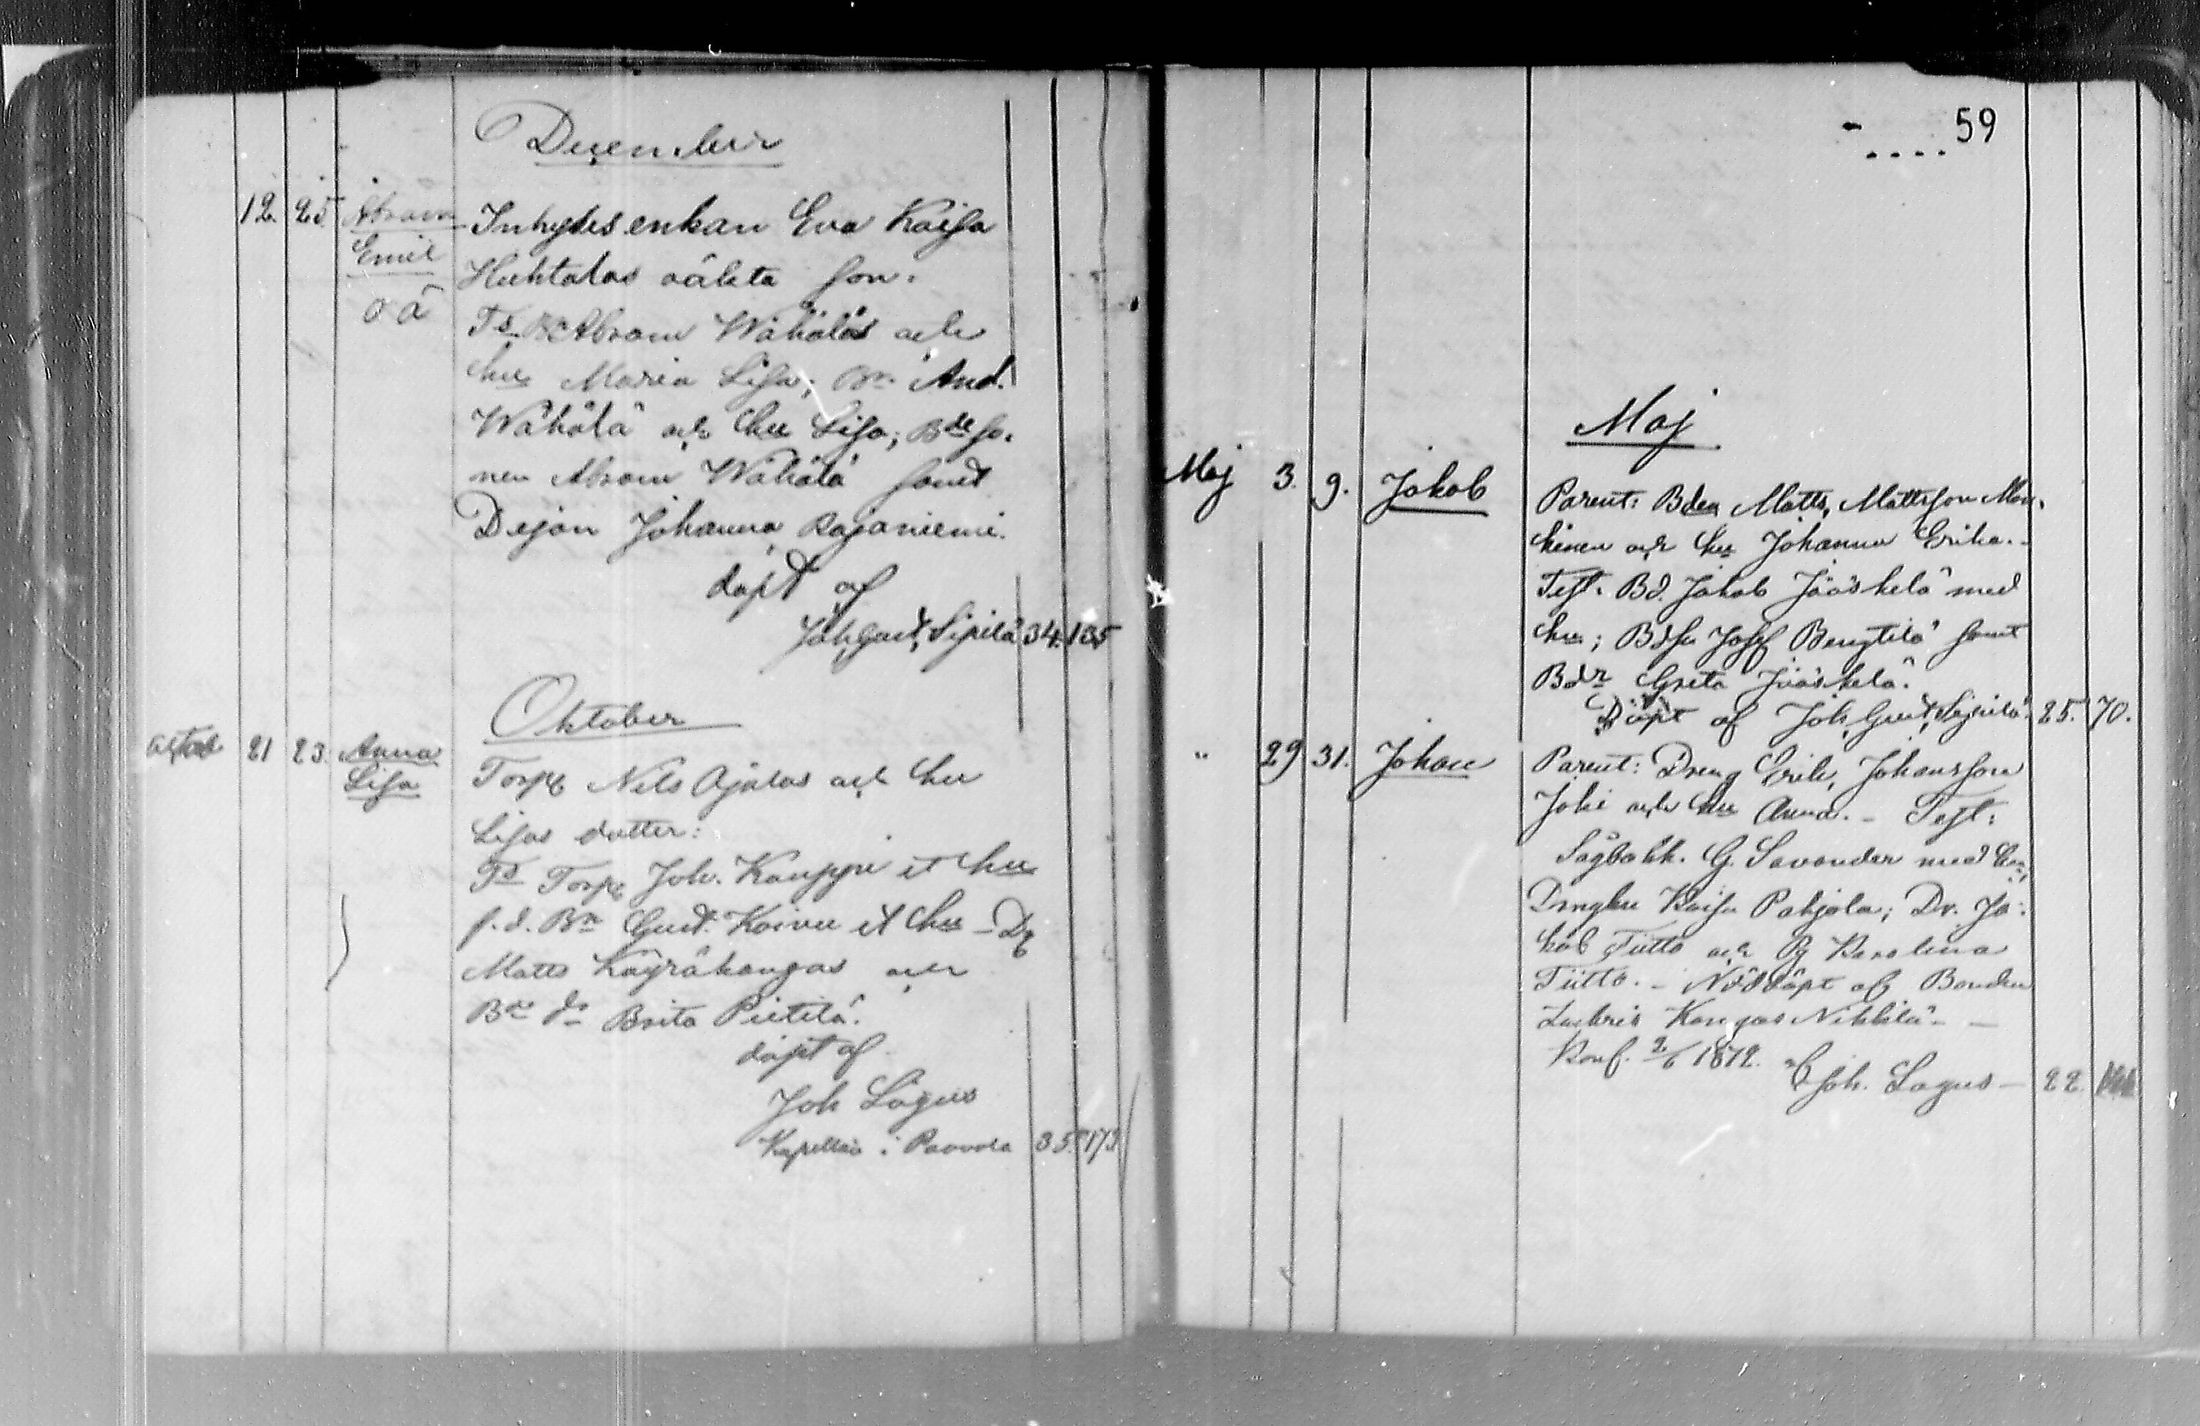 December
12. 25. Abram Inhyses enkan Eva Kaisa
Emil Huhtalas oäkta son.
oä Td. Abram Wähälä och
hu Maria Lisa; Bn. And.
Wähälä och hu Lisa; Bdeso-
nen Abram Wähälä samt
Dejan Johanna Rajaniemi.
döpt af
Joh. Gust. Sipilä 34. 135
Oktober
21 23. Anna Torp Nils Ajalas och hu
Lisa Lisas dotter:
Td Torp Joh. Kauppi et hu
f.d. Bn Gust. Koivu et hu - Dg
Matts Käyräkangas och
Bde dr Brita Pietilä.
döpt af
Joh Lagus
Kapellan i Paavola 35. 173
59
Maj
Maj 3. 9. Jakob Parent: Bden Matts, Mattsson Mon-
kinen och hu Johanna Erika.-
Test. Bd. Jakob Jääskelä med
hu; Bdsn Josef Bengtilä samt
Bdr Greta Jääskelä.
Döpt af Joh. Gust. Sipilä. 25. 70.
" 29 31. Johan Parent: Dreng Erik, Johansson
Joki och hu Anna. - Test:
Sågbokh. G. Savander med hu,
Drnghu Kaisa Pohjola; Dr. Ja-
kob Tiitto och Pg Karolina
Tiitto. - Nöddöpt af Bonden
Zachris Kangas Nikkilä -
Konf. 2/6 1872. af Joh. Lagus - 22.